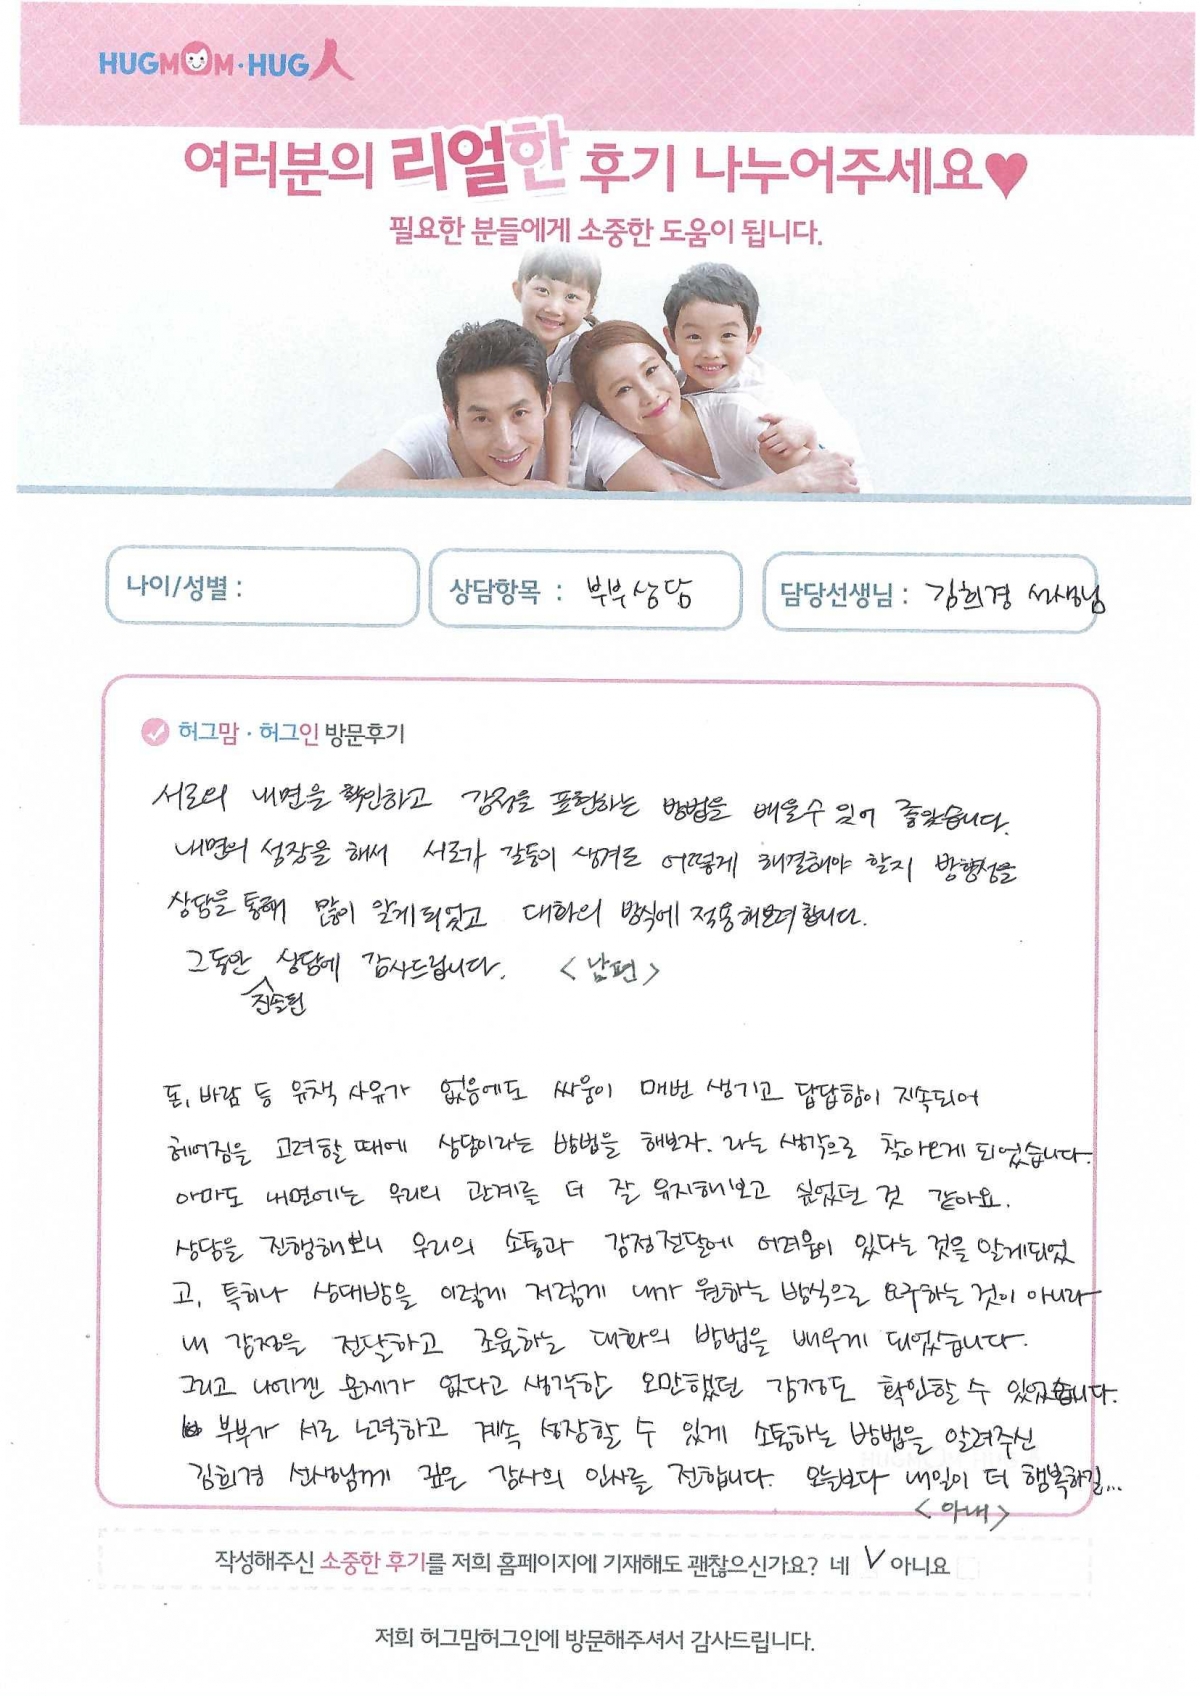 HUGMOM·HUG人
여러분의 리얼한 후기 나누어주세요♥
필요한 분들에게 소중한 도움이 됩니다.
나이/성별 :
상담항목 : 부부상담
담당선생님 : 김희경 선생님
허그맘 · 허그인 방문후기
서로의 내면을 확인하고 감정을 표현하는 방법을 배울수 있어 좋았습니다.
내면의 성장을 해서 서로가 갈등이 생겨도 어떻게 해결해야 할지 방향성을
상담을 통해 많이 알게되었고 대화의 방식에 적용해보려합니다.
그동안 진솔된 상담에 감사드립니다. <남편>
돈, 바람 등 유책 사유가 없음에도 싸움이 매번 생기고 답답함이 지속되어
헤어짐을 고려할 때에 상담이라는 방법을 해보자. 라는 생각으로 찾아오게 되었습니다.
아마도 내면에는 우리의 관계를 더 잘 유지해보고 싶었던 것 같아요.
상담을 진행해보니 우리의 소통과 감정전달에 어려움이 있다는 것을 알게되었
고, 특히나 상대방을 이렇게 저렇게 내가 원하는 방식으로 요구하는 것이 아니라
내 감정을 전달하고 조율하는 대화의 방법을 배우게 되었습니다.
그리고 나에겐 문제가 없다고 생각한 오만했던 감정도 확인할 수 있었습니다.
부부가 서로 노력하고 계속 성장할 수 있게 소통하는 방법을 알려주신
김희경 선생님께 깊은 감사의 인사를 전합니다. 오늘보다 내일이 더 행복하길...
<아내>
작성해주신 소중한 후기를 저희 홈페이지에 기재해도 괜찮으신가요? 네 V 아니요
저희 허그맘허그인에 방문해주셔서 감사드립니다.